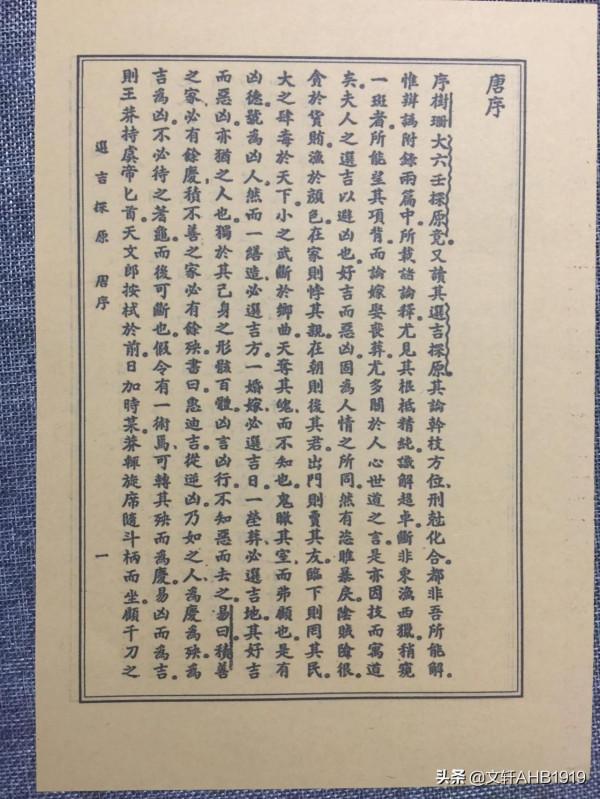 唐序
序樹珊大六壬探原竟。又讀其選吉探原。其論幹枝方位、刑尅化合。都非吾所能解。
惟辯譌附錄兩篇中。所載諸論釋。尤見其根柢精純。識解超卓。斷非東漁西獵。稍窺
一斑者。所能望其項背。而論嫁娶喪葬。尤多關於人心世道之言。是亦因技而寓道
矣。夫人之選吉。以避凶也。好吉而惡凶。固為人情之所同。然有恣睢暴戾。陰賊險很。
貪於貨賄。漁於顏色。在家則悖其親。在朝則後其君。出門則賣其友。臨下則罔其民。
大之肆毒於天下。小之武斷於鄉曲。天奪其魄、而不知也。鬼瞰其室、而弗顧也。是有
凶德。號為凶人。然而一繕造、必選吉方。一婚嫁、必選吉日。一塋葬、必選吉地。其好吉
而惡凶。亦猶之人也。獨於其己身之形骸百體。凶言凶行。不知惡而去之。易曰。積善
之家、必有餘慶。積不善之家、必有餘殃。書曰。惠迪吉。從逆凶。乃如之人、為慶為殃。為
吉為凶。不必待之蓍龜而後可斷也。假令有一術焉、可轉其殃而為慶。易凶而為吉。
則王莽持虞帝匕首。天文郎按栻於前。日加時某。莽輒旋席隨斗柄而坐。顧千刀之
選吉探原 周序 一
头条@文轩AHB1919